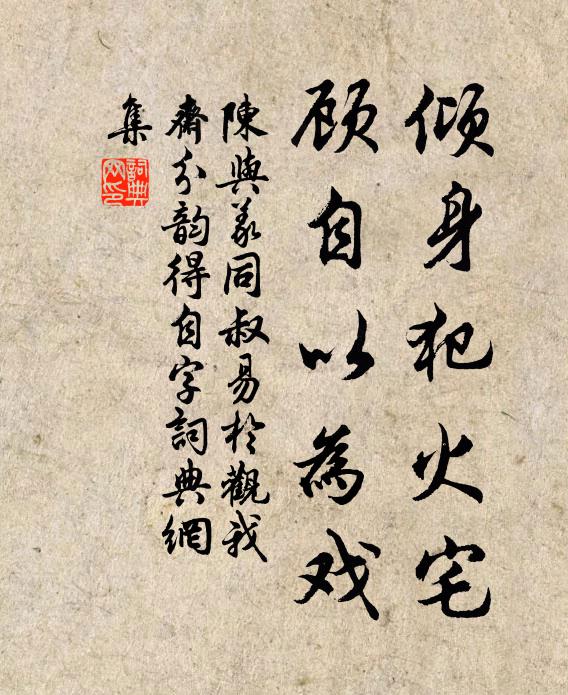 倾身犯火宅
顾自以為戏
陳與義同叔易於觀我
齋分韵得自字詞典網
集
詞典
网印